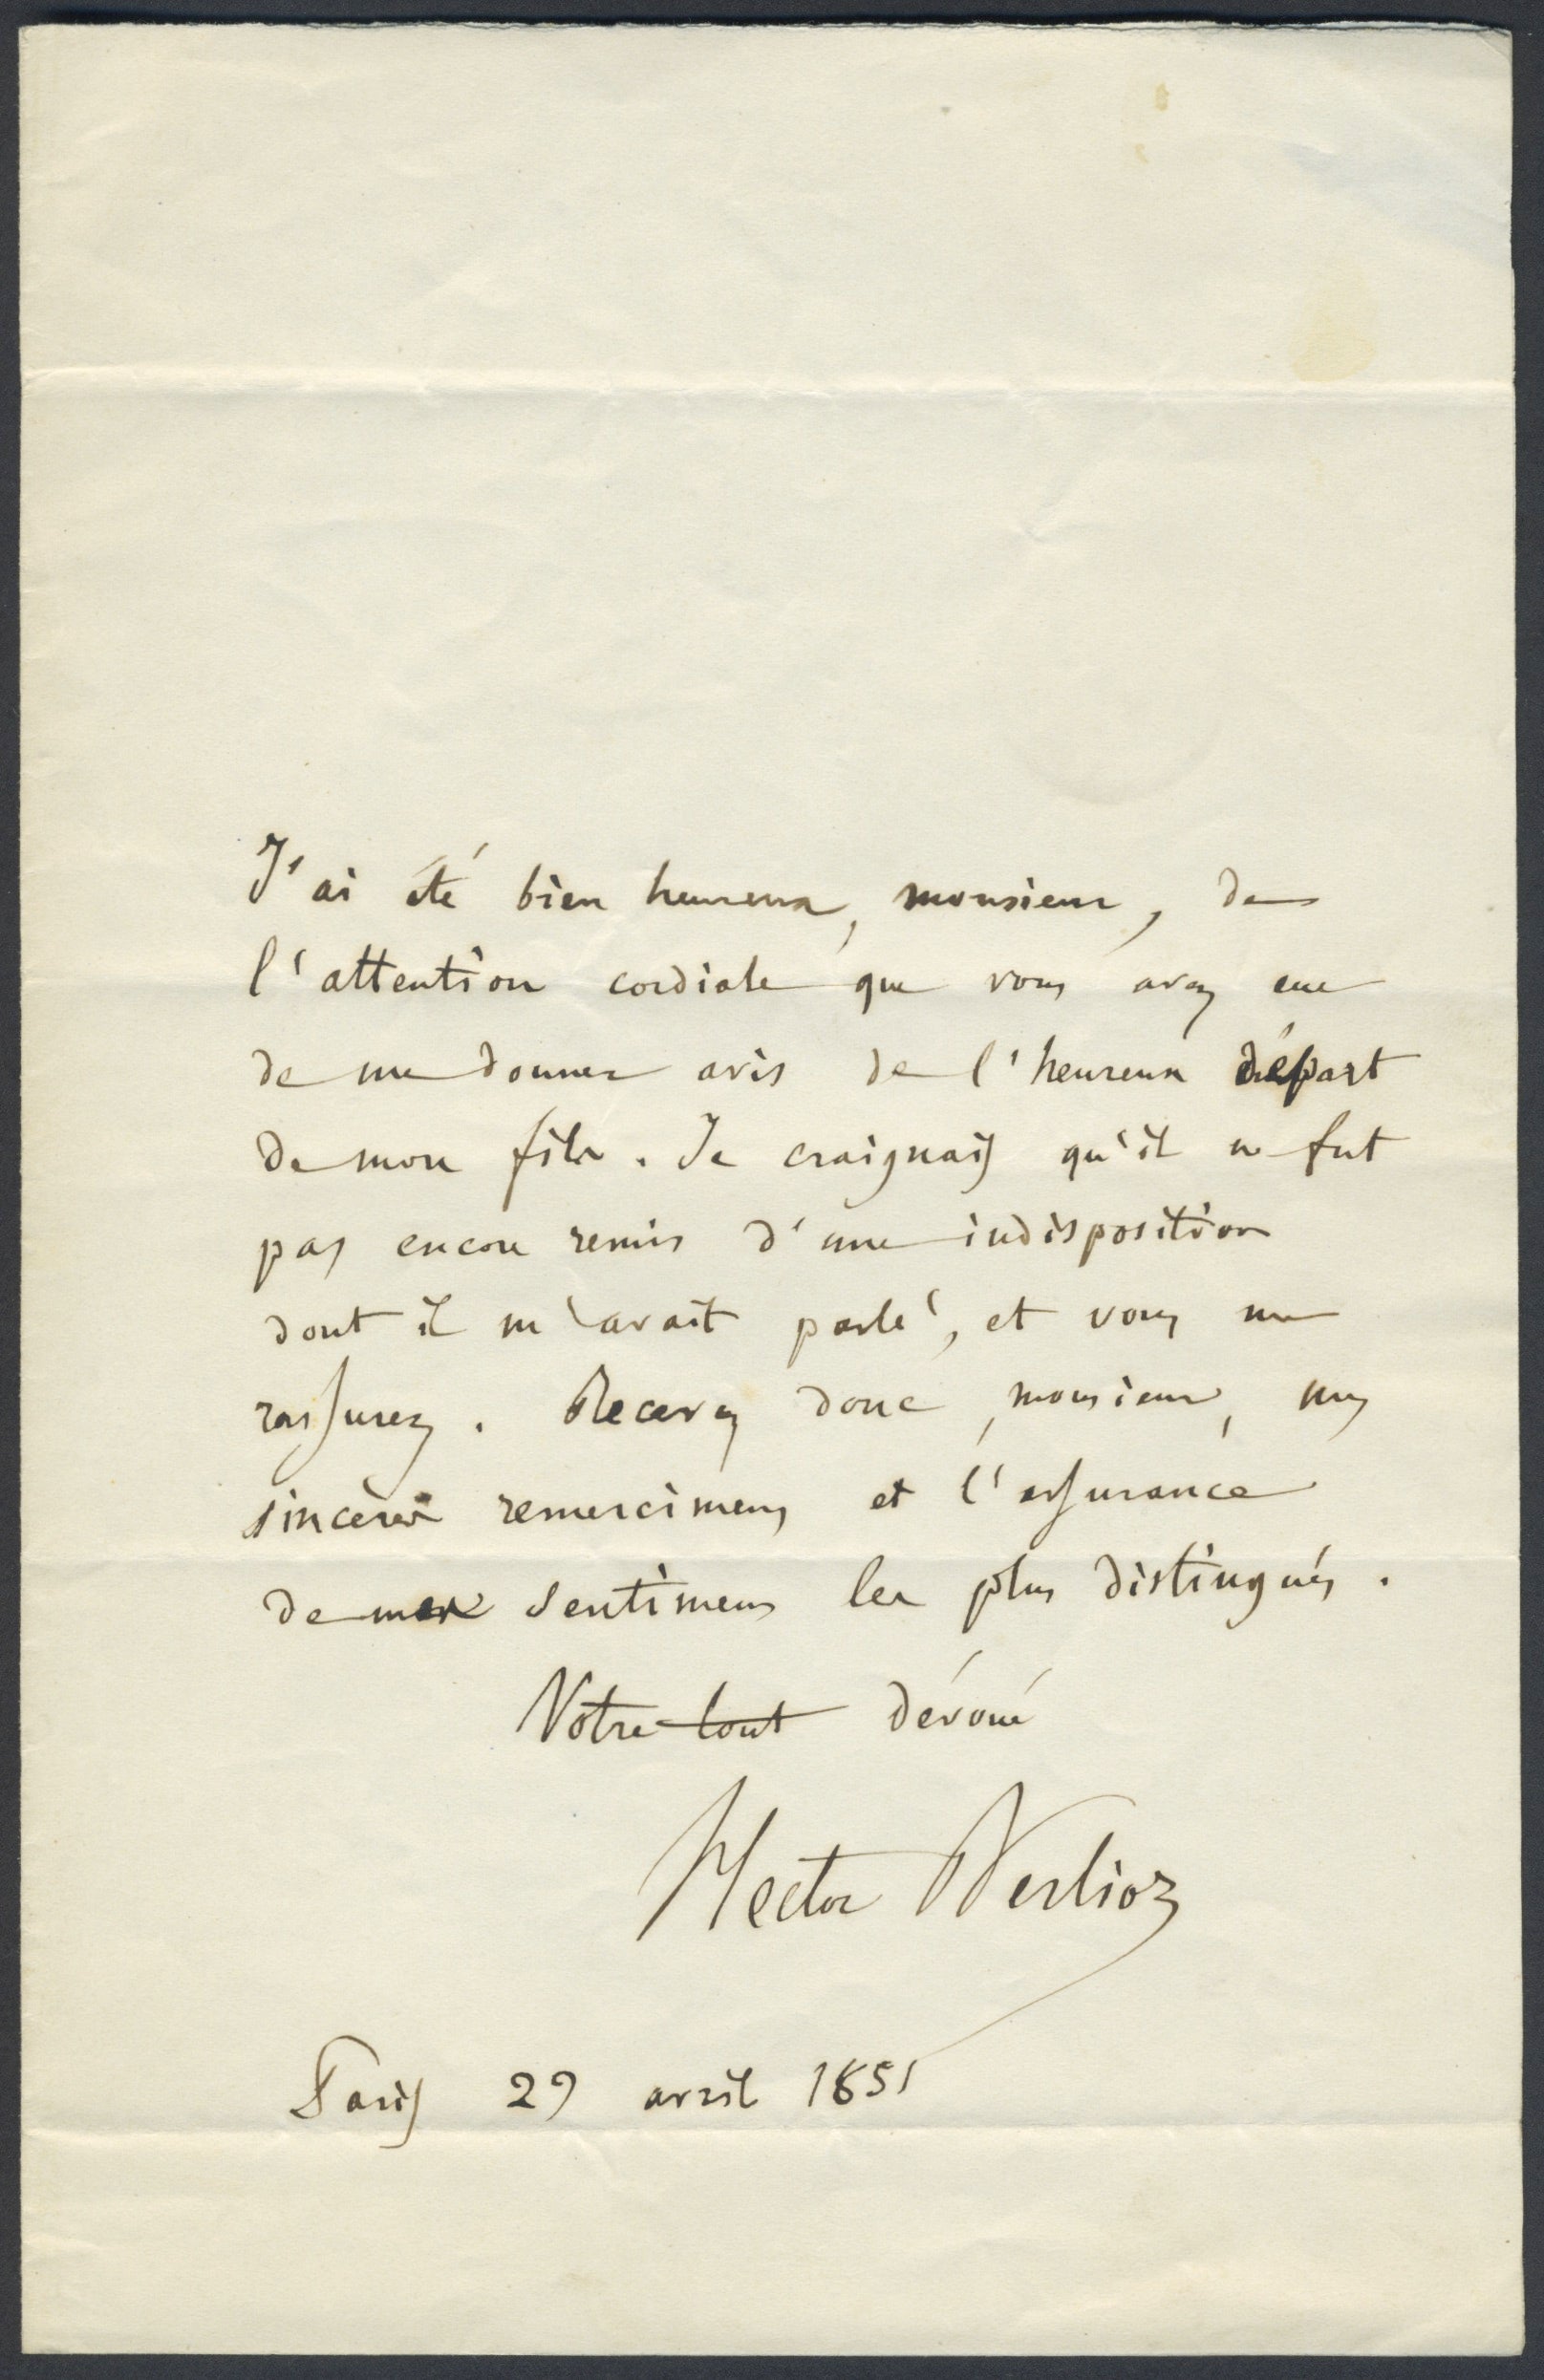 J'ai été bien heureux, monsieur, de
l'attention cordiale que vous avez eue
de me donner avis de l'heureux départ
de mon fils. Je craignais qu'il ne fut
pas encore remis d'une indisposition
dont il m'avait parlé, et vous me
rassurez. Recevez donc, monsieur, mes
sincères remercimens et l'assurance
de mes sentimens les plus distingués.
Votre tout dévoué
Hector Berlioz
Paris 29 avril 1851